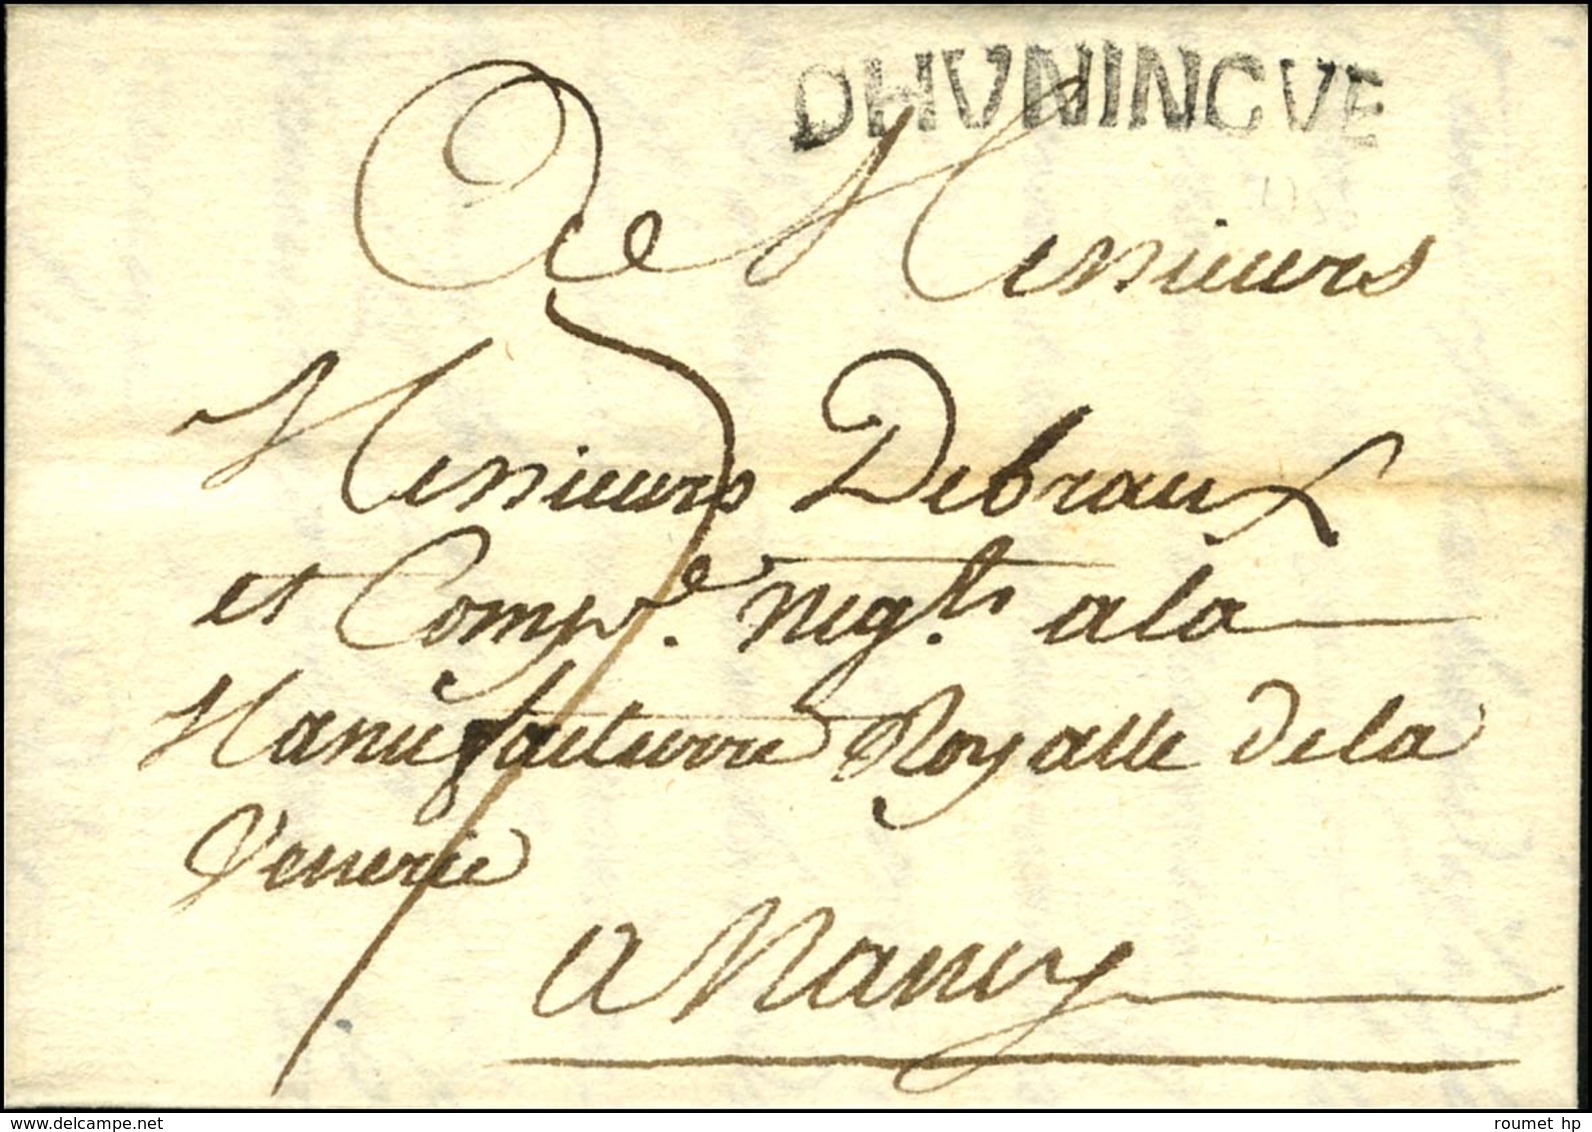 DHUNINGUE
A Messieurs
Messieurs Debraux
et Comp.e neg.ts a la
Manufacturre Royalle de la
Venerie
a Nancy
www.delcampe.net
roumet hp